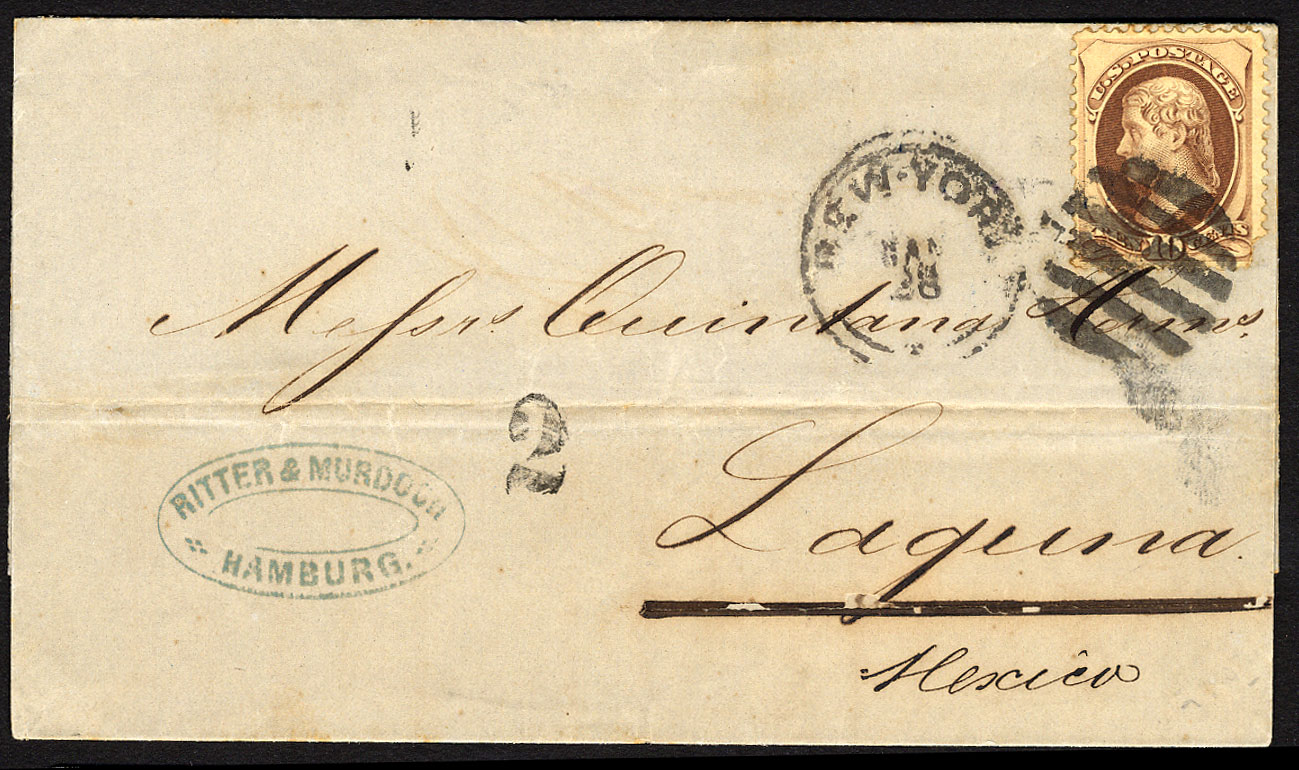 U.S. POSTAGE
TEN 10 CENTS
NEW·YORK
28
Messrs Quintana Herms.
2
Laguna.
Mexico
RITTER & MURDOCH
HAMBURG.